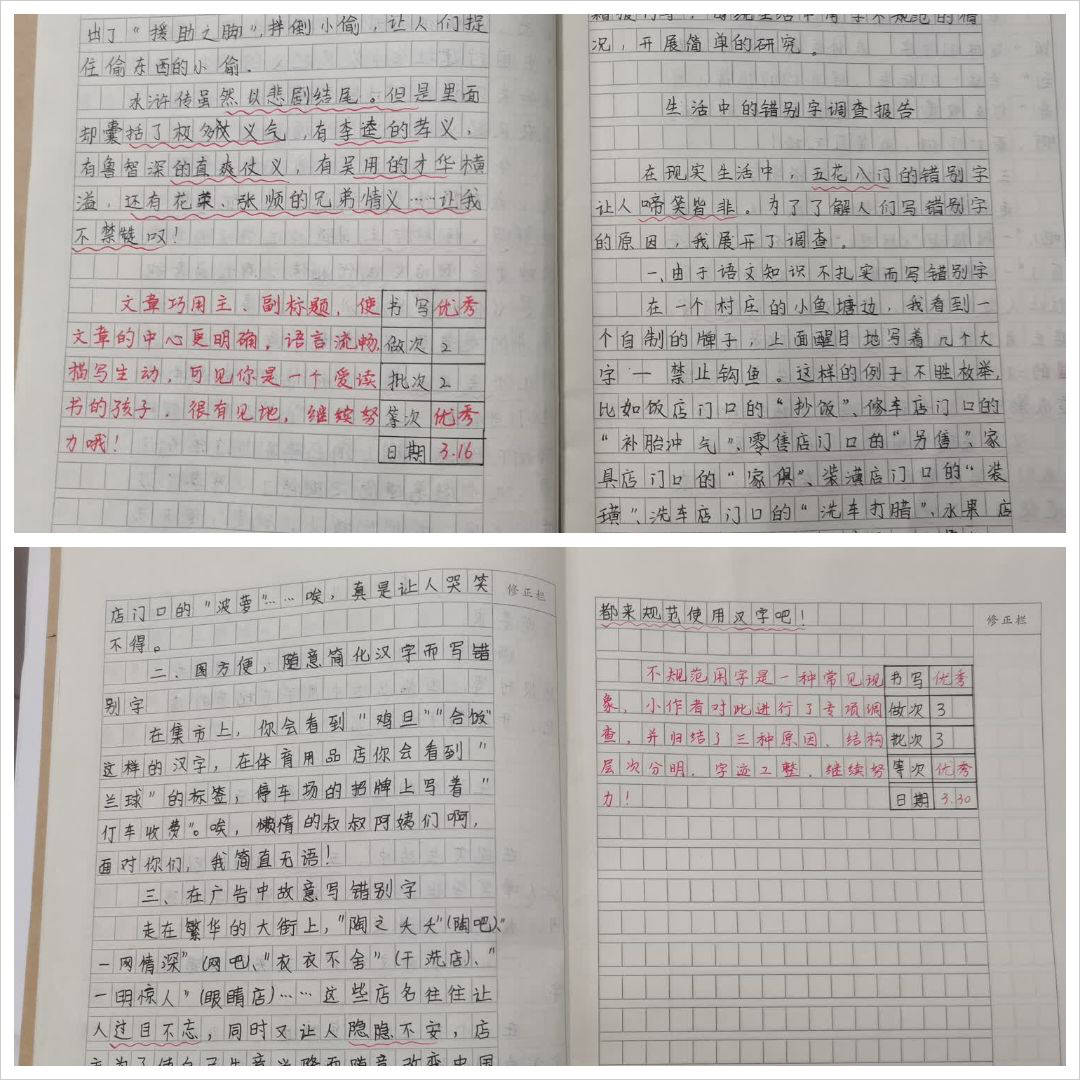 出了“援助之脚”,拌倒小偷,让人们捉
住偷东西的小偷.
水浒传虽然以悲剧结尾。但是里面
却囊括了极多仗义气,有李逵的孝义,
有鲁智深的直爽仗义,有吴用的才华横
溢,还有花荣、张顺的兄弟情义……让我
不禁赞叹!
文章巧用主、副标题,使
文章的中心更明确。语言流畅,
描写生动,可见你是一个爱读
书的孩子,很有见地,继续努
力哦!
书写 优秀
做次 2
批次 2
等次 优秀
日期 3.16
况,开展简单的研究。
生活中的错别字调查报告
在现实生活中,五花八门的错别字
让人啼笑皆非。为了了解人们写错别字
的原因,我展开了调查。
一、由于语文知识不扎实而写错别字
在一个村庄的小鱼塘边,我看到一
个自制的牌子,上面醒目地写着几个大
字一禁止钩鱼。这样的例子不胜枚举,
比如饭店门口的“抄饭”、修车店门口的
“补胎冲气”、零售店门口的“另售”、家
具店门口的“家俱”、装潢店门口的“装
璜”、洗车店门口的“洗车打腊”、水果店
店门口的“波萝”……唉,真是让人哭笑
不得。
二、图方便,随意简化汉字而写错
别字
在集市上,你会看到“鸡旦”“合饭”
这样的汉字,在体育用品店你会看到“
兰球”的标签,停车场的招牌上写着“
仃车收费”。唉,懒惰的叔叔阿姨们啊,
面对你们,我简直无语!
三、在广告中故意写错别字
走在繁华的大街上,“陶之夭夭”(陶吧)、“
一网情深”(网吧)、“衣衣不舍”(干洗店)、“
一明惊人”(眼睛店)……这些店名往往让
人过目不忘,同时又让人隐隐不安,店
主为了使自己生意兴隆而随意改变中国
修正栏
都来规范使用汉字吧!
修正栏
不规范用字是一种常见现
象,小作者对此进行了专项调
查,并归结了三种原因,结构
层次分明,字迹工整,继续努
力!
书写 优秀
做次 3
批次 3
等次 优秀
日期 3.30